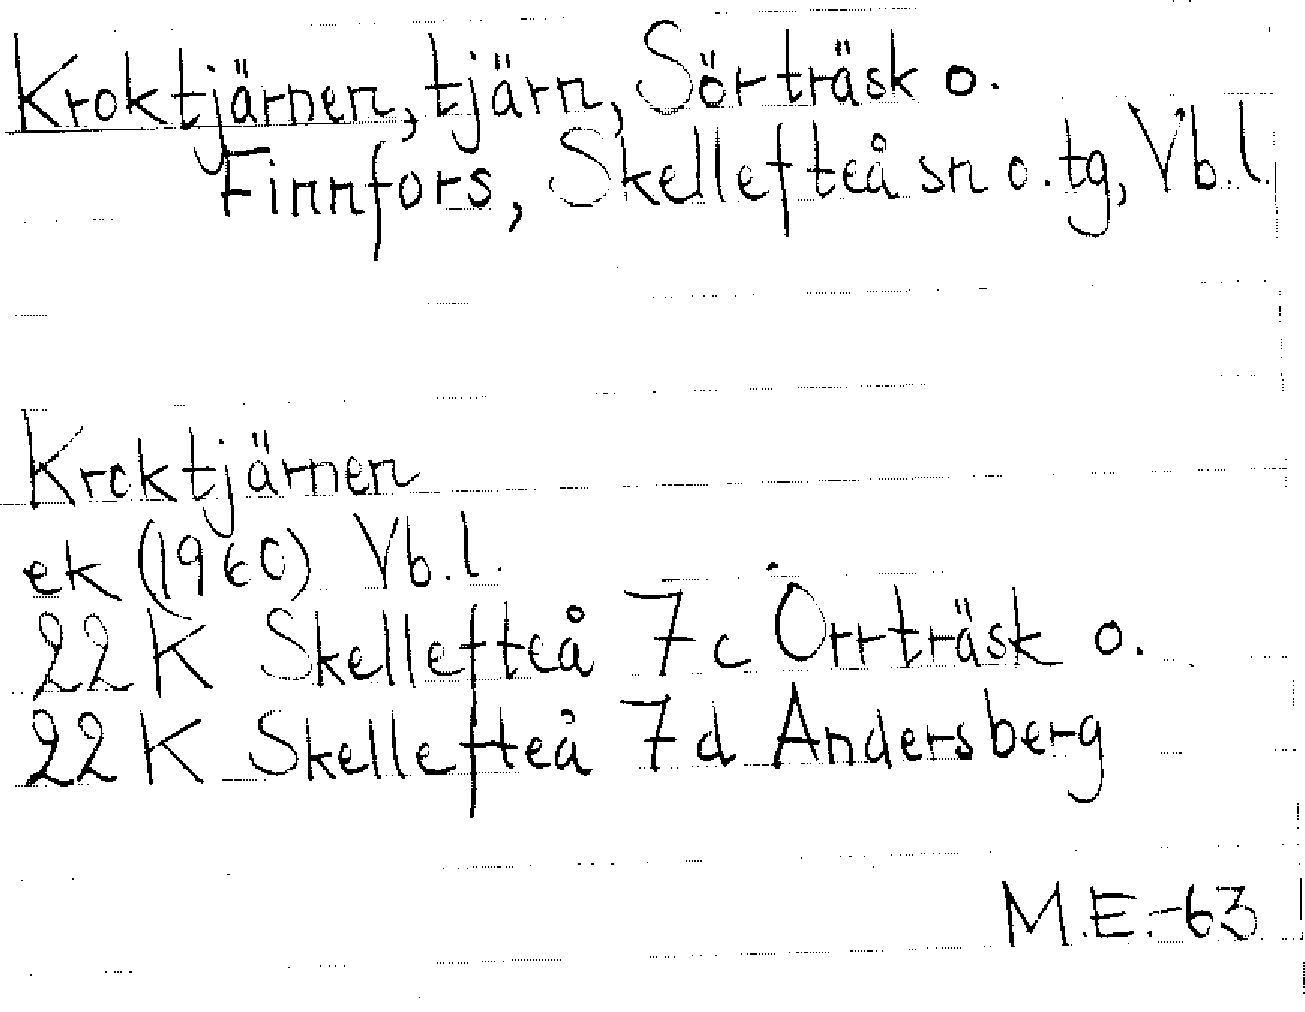 Kroktjärnen, tjärn, Sörträsk o.
Finnfors, Skellefteå sn o. tg, Vb.l.
Kroktjärnen
ek (1960) Vb.l.
22 K Skellefteå 7c Orrträsk o.
22 K Skellefteå 7d Andersberg
M.E.-63